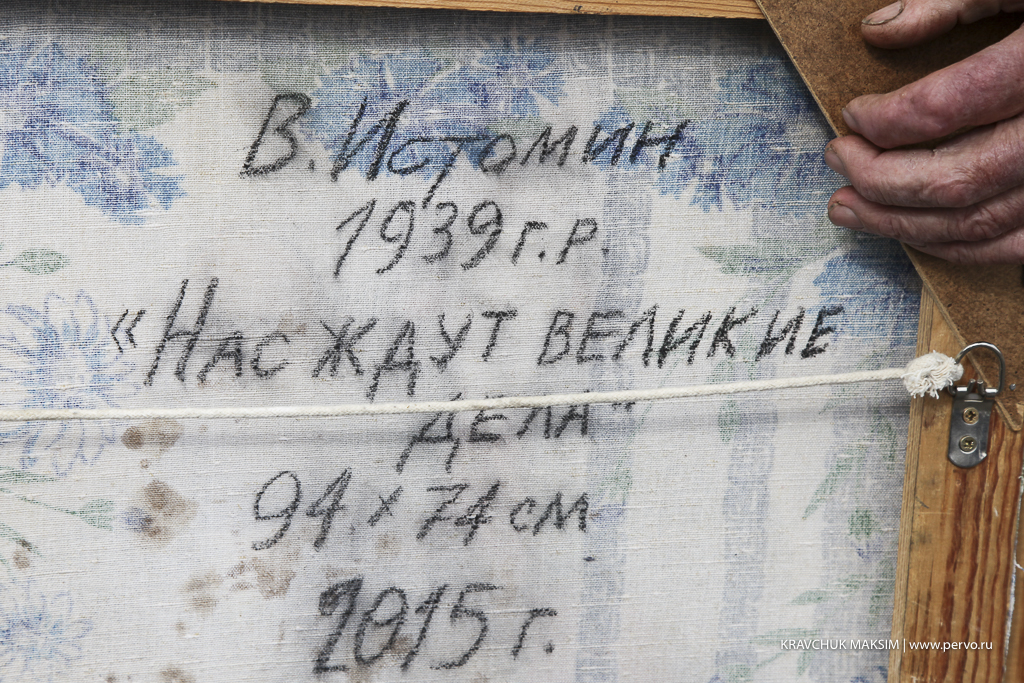 В. Истомин
1939 г.р.
«Нас ждут великие
дела"
94 x 74 см
2015 г.
KRAVCHUK MAKSIM | www.pervo.ru